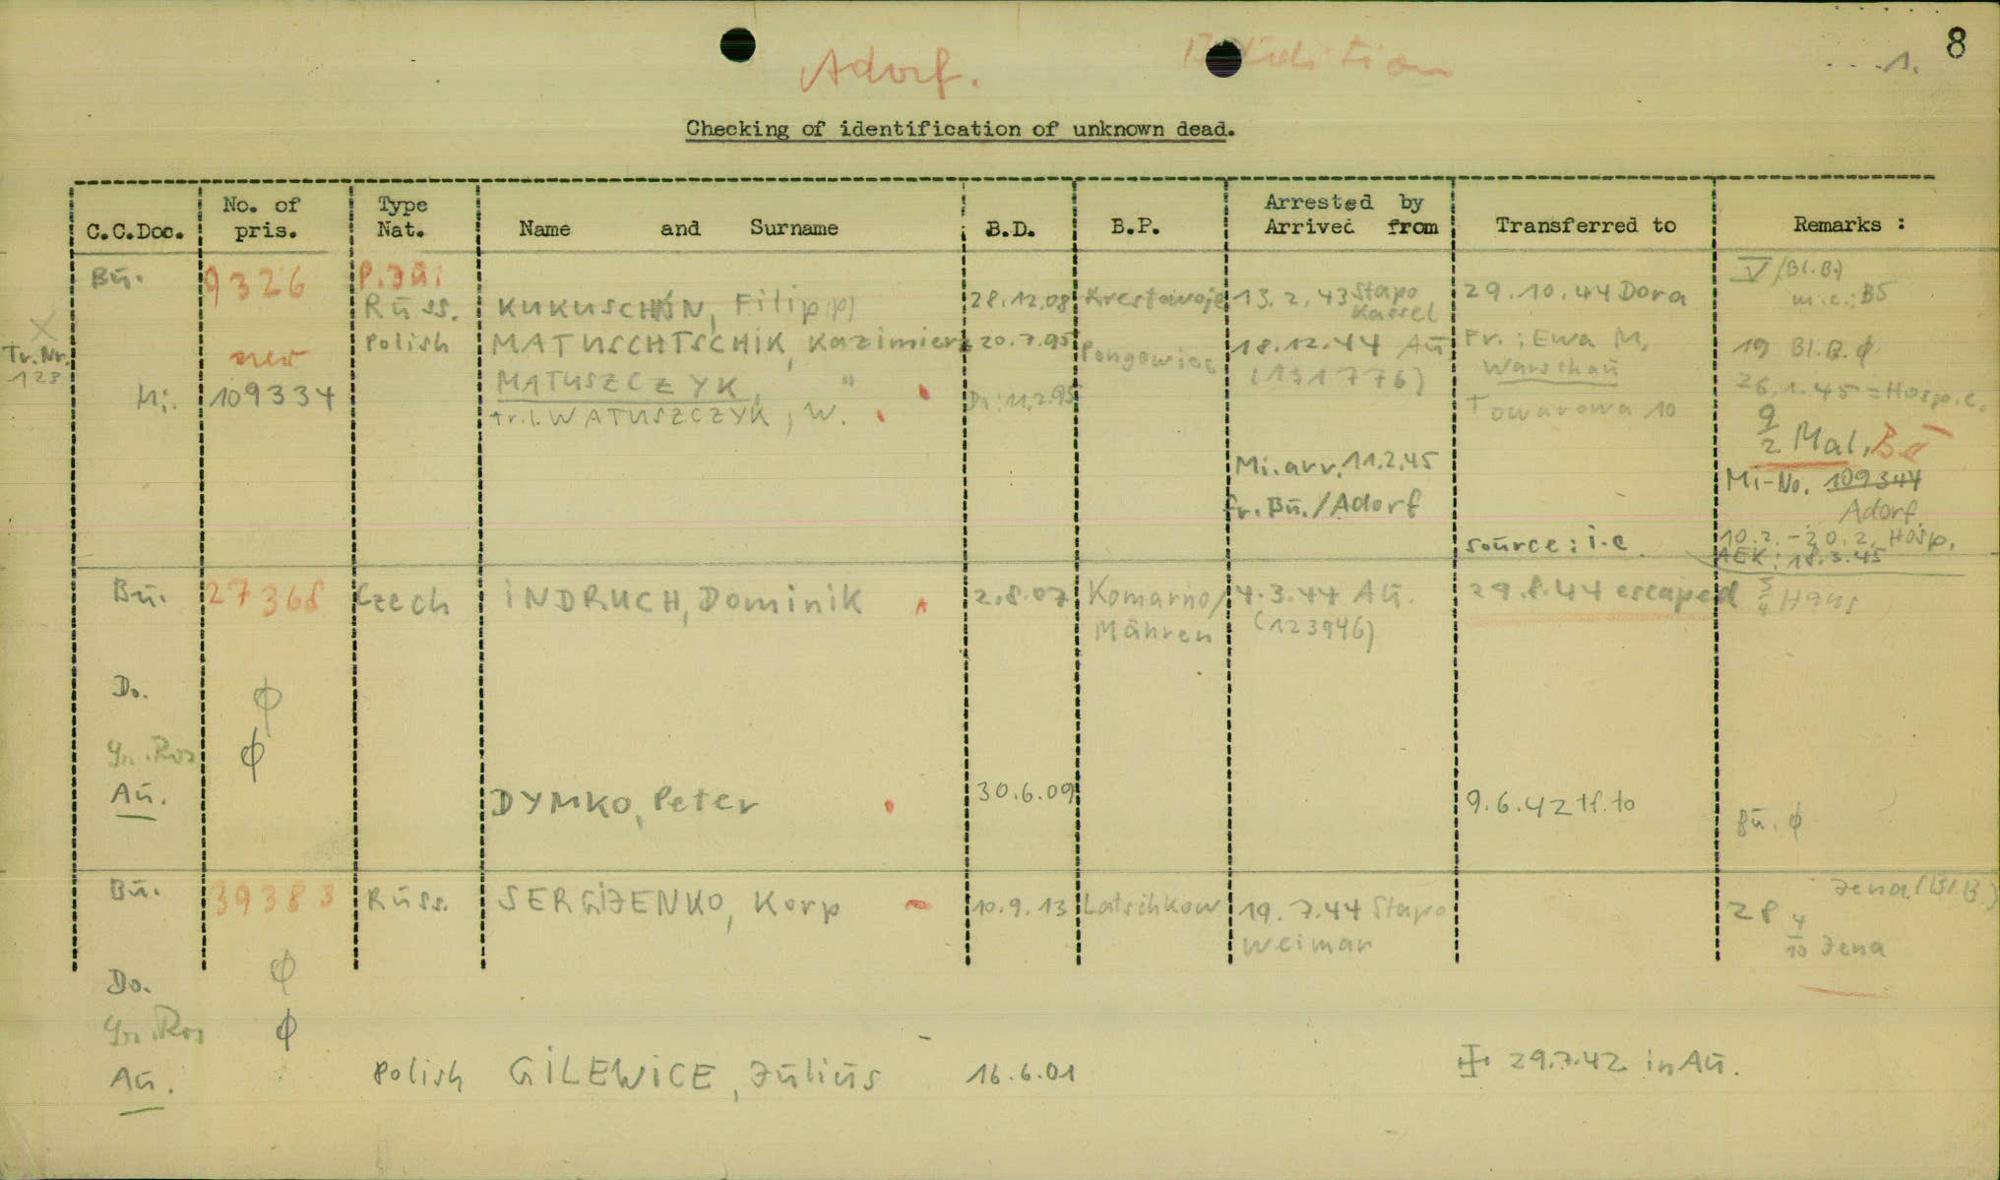 8
1.
Adorf.
Checking of identification of unknown dead.
C.C.Doc. No. of pris. Type Nat. Name and Surname B.D. B.P. Arrested by Arrived from Transferred to Remarks :
Bū. 9326 P.Jū. V/(Bl.B.)
Rūss. KUKUSCHKIN, Filip(p) 28.12.08 Krestowoje 13.2.43 Stapo Kassel 29.10.44 Dora m.c.: B5
Tr.Nr. 123
neu Polish MATUSCHTSCHIK, Kazimierz 20.7.95 18.12.44 Aū Fr.: Ewa M, 19 Bl.B. ϕ
(131776) Warschaū
Mi. 109334 MATUSZCZYK, " Da: 11.2.95 26.1.45 = Hosp.c.
tr.l. WATUSZCZYK, W. Towarowa 10
9/2 Mal. Bū
Mi. arr. 11.2.45 Mi-No. 109344
fr. Bū./Adorf Adorf
source: i.c. 10.2.-20.2. Hosp.
AEK: 18.3.45
Bū. 27368 Czech INDRUCH, Dominik 2.8.07 Komarno/ 4.3.44 Aū. 29.8.44 escaped 5/4 Haus
Mähren (123946)
Do. ϕ
Gr.Ros ϕ
Aū. DYMKO, Peter 30.6.09 9.6.42 tf. to Bū. ϕ
Bū. 39383 Rūss. SERGIJENKO, Korp 10.9.13 Latschkow 19.7.44 Stapo Jena (Bl.B.)
Weimar 28 4/10 Jena
Do. ϕ
Gr.Ros ϕ
Aū. Polish GILEWICE, Jūliūs 16.6.01 29.7.42 in Aū.